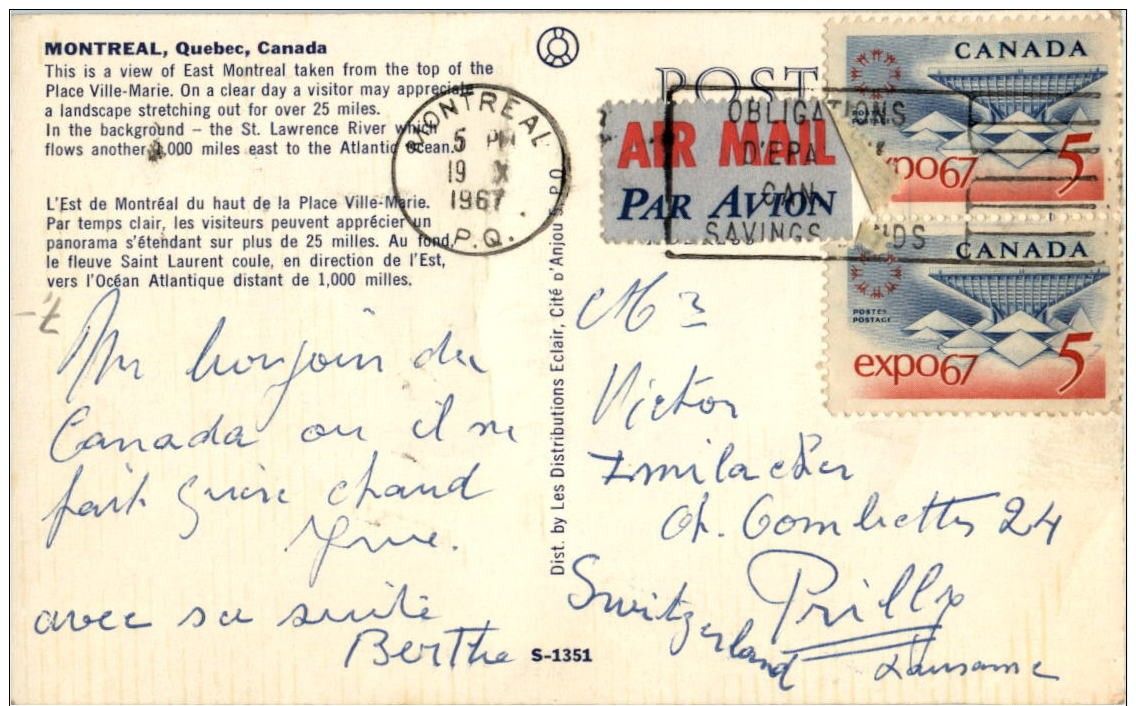 MONTREAL, Quebec, Canada
This is a view of East Montreal taken from the top of the
Place Ville-Marie. On a clear day a visitor may appreciate
a landscape stretching out for over 25 miles.
In the background – the St. Lawrence River which
flows another 1,000 miles east to the Atlantic Ocean.
L'Est de Montréal du haut de la Place Ville-Marie.
Par temps clair, les visiteurs peuvent apprécier un
panorama s'étendant sur plus de 25 milles. Au fond,
le fleuve Saint Laurent coule, en direction de l'Est,
vers l'Océan Atlantique distant de 1,000 milles.
Un bonjour du
Canada ou il ne
fait guère chaud
avec sa suite
Berthe
S-1351
Dist. by Les Distributions Eclair, Cité D'Anjou 5, P.Q.
MONTREAL
5 PM
19 X
1967
P.Q.
POST
AIR MAIL
PAR AVION
OBLIGATIONS
D'EPA
CAN
SAVINGS BONDS
CANADA
expo67
5
CANADA
POSTES
POSTAGE
expo67
5
Mr
Victor
Ch. Combettes 24
Prilly
Switzerland
Lausanne